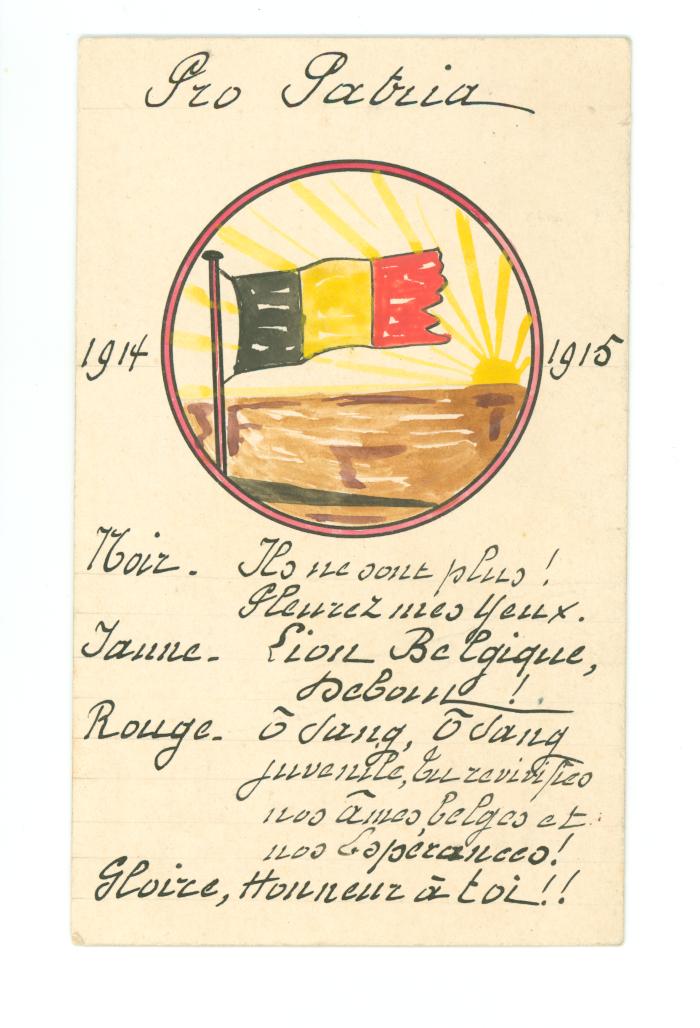 Pro Patria
1914 1915
Noir. Ils ne sont plus !
Pleurez mes yeux.
Jaune. Lion Belgique,
Debout !
Rouge. Ô sang, Ô sang
juvenile, tu revivifies
nos âmes belges et
nos Espérances!
Gloire, Honneur à toi!!